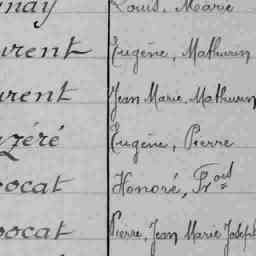 nay Louis, Marie
urent Eugène, Mathurin
urent Jean Marie, Mathurin
zéré Eugène, Pierre
ocat Honoré, Fr.ois
ocat Pierre, Jean Marie Joseph